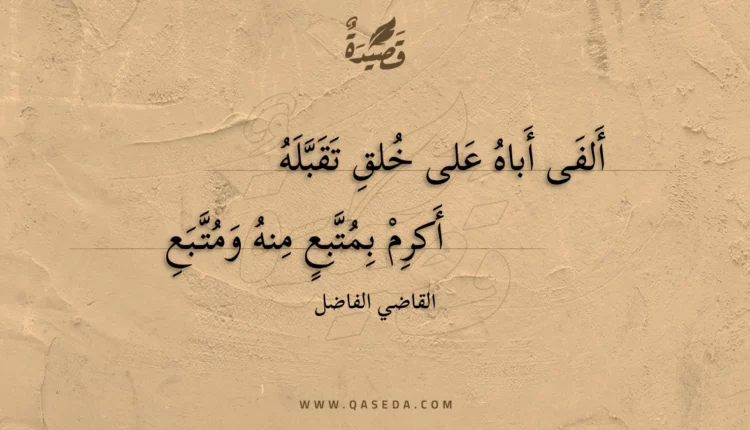 قَصِيْدَةٌ
أَلفَى أَباهُ عَلى خُلقِ تَقَبَّلَهُ
أَكرِمْ بِمُتَّبِعٍ مِنهُ وَمُتَّبَعِ
القاضي الفاضل
WWW.QASEDA.COM